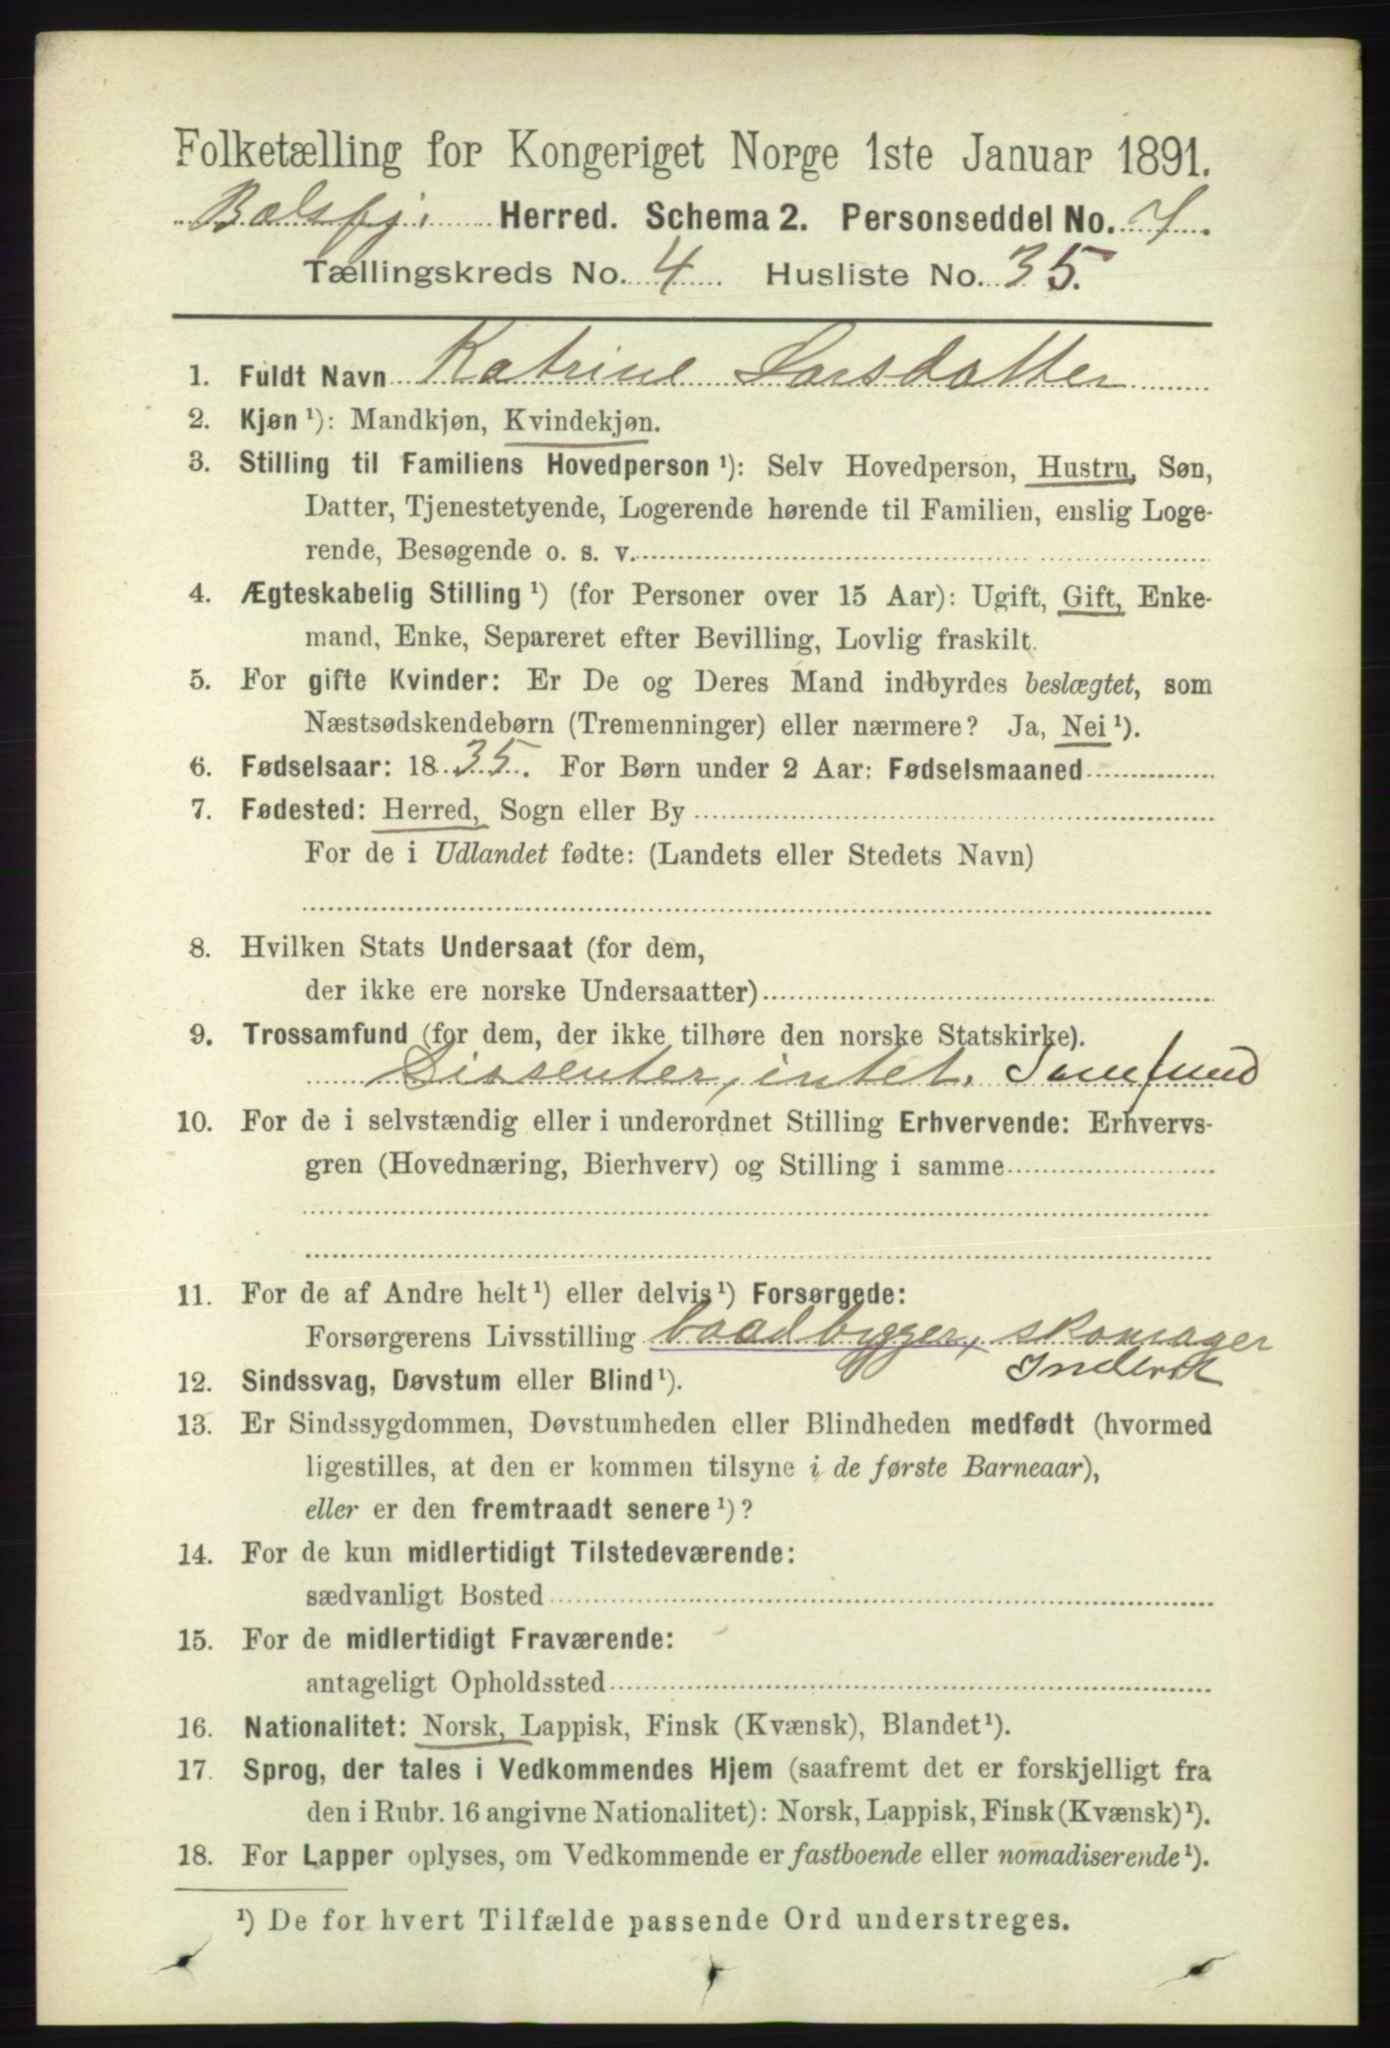 Folketælling for Kongeriget Norge 1ste Januar 1891.
Balsfj. Herred. Schema 2. Personseddel No. 7.
Tællingskreds No. 4 Husliste No. 35.
1. Fuldt Navn Katrine Larsdatter
2. Kjøn ¹): Mandkjøn, Kvindekjøn.
3. Stilling til Familiens Hovedperson ¹): Selv Hovedperson, Hustru, Søn,
Datter, Tjenestetyende, Logerende hørende til Familien, enslig Loge-
rende, Besøgende o. s. v.
4. Ægteskabelig Stilling ¹) (for Personer over 15 Aar): Ugift, Gift, Enke-
mand, Enke, Separeret efter Bevilling, Lovlig fraskilt.
5. For gifte Kvinder: Er De og Deres Mand indbyrdes beslægtet, som
Næstsødskendebørn (Tremenninger) eller nærmere? Ja, Nei ¹).
6. Fødselsaar: 1835. For Børn under 2 Aar: Fødselsmaaned
7. Fødested: Herred, Sogn eller By
For de i Udlandet fødte: (Landets eller Stedets Navn)
8. Hvilken Stats Undersaat (for dem,
der ikke ere norske Undersaatter)
9. Trossamfund (for dem, der ikke tilhøre den norske Statskirke).
Dissenter, intet. Samfund
10. For de i selvstændig eller i underordnet Stilling Erhvervende: Erhvervs-
gren (Hovednæring, Bierhverv) og Stilling i samme
11. For de af Andre helt ¹) eller delvis ¹) Forsørgede:
Forsørgerens Livsstilling baadbygger, skomager
12. Sindssvag, Døvstum eller Blind ¹).
13. Er Sindssygdommen, Døvstumheden eller Blindheden medfødt (hvormed
ligestilles, at den er kommen tilsyne i de første Barneaar),
eller er den fremtraadt senere ¹)?
14. For de kun midlertidigt Tilstedeværende:
sædvanligt Bosted
15. For de midlertidigt Fraværende:
antageligt Opholdssted
16. Nationalitet: Norsk, Lappisk, Finsk (Kvænsk), Blandet ¹).
17. Sprog, der tales i Vedkommendes Hjem (saafremt det er forskjelligt fra
den i Rubr. 16 angivne Nationalitet): Norsk, Lappisk, Finsk (Kvænsk) ¹).
18. For Lapper oplyses, om Vedkommende er fastboende eller nomadiserende ¹).
¹) De for hvert Tilfælde passende Ord understreges.